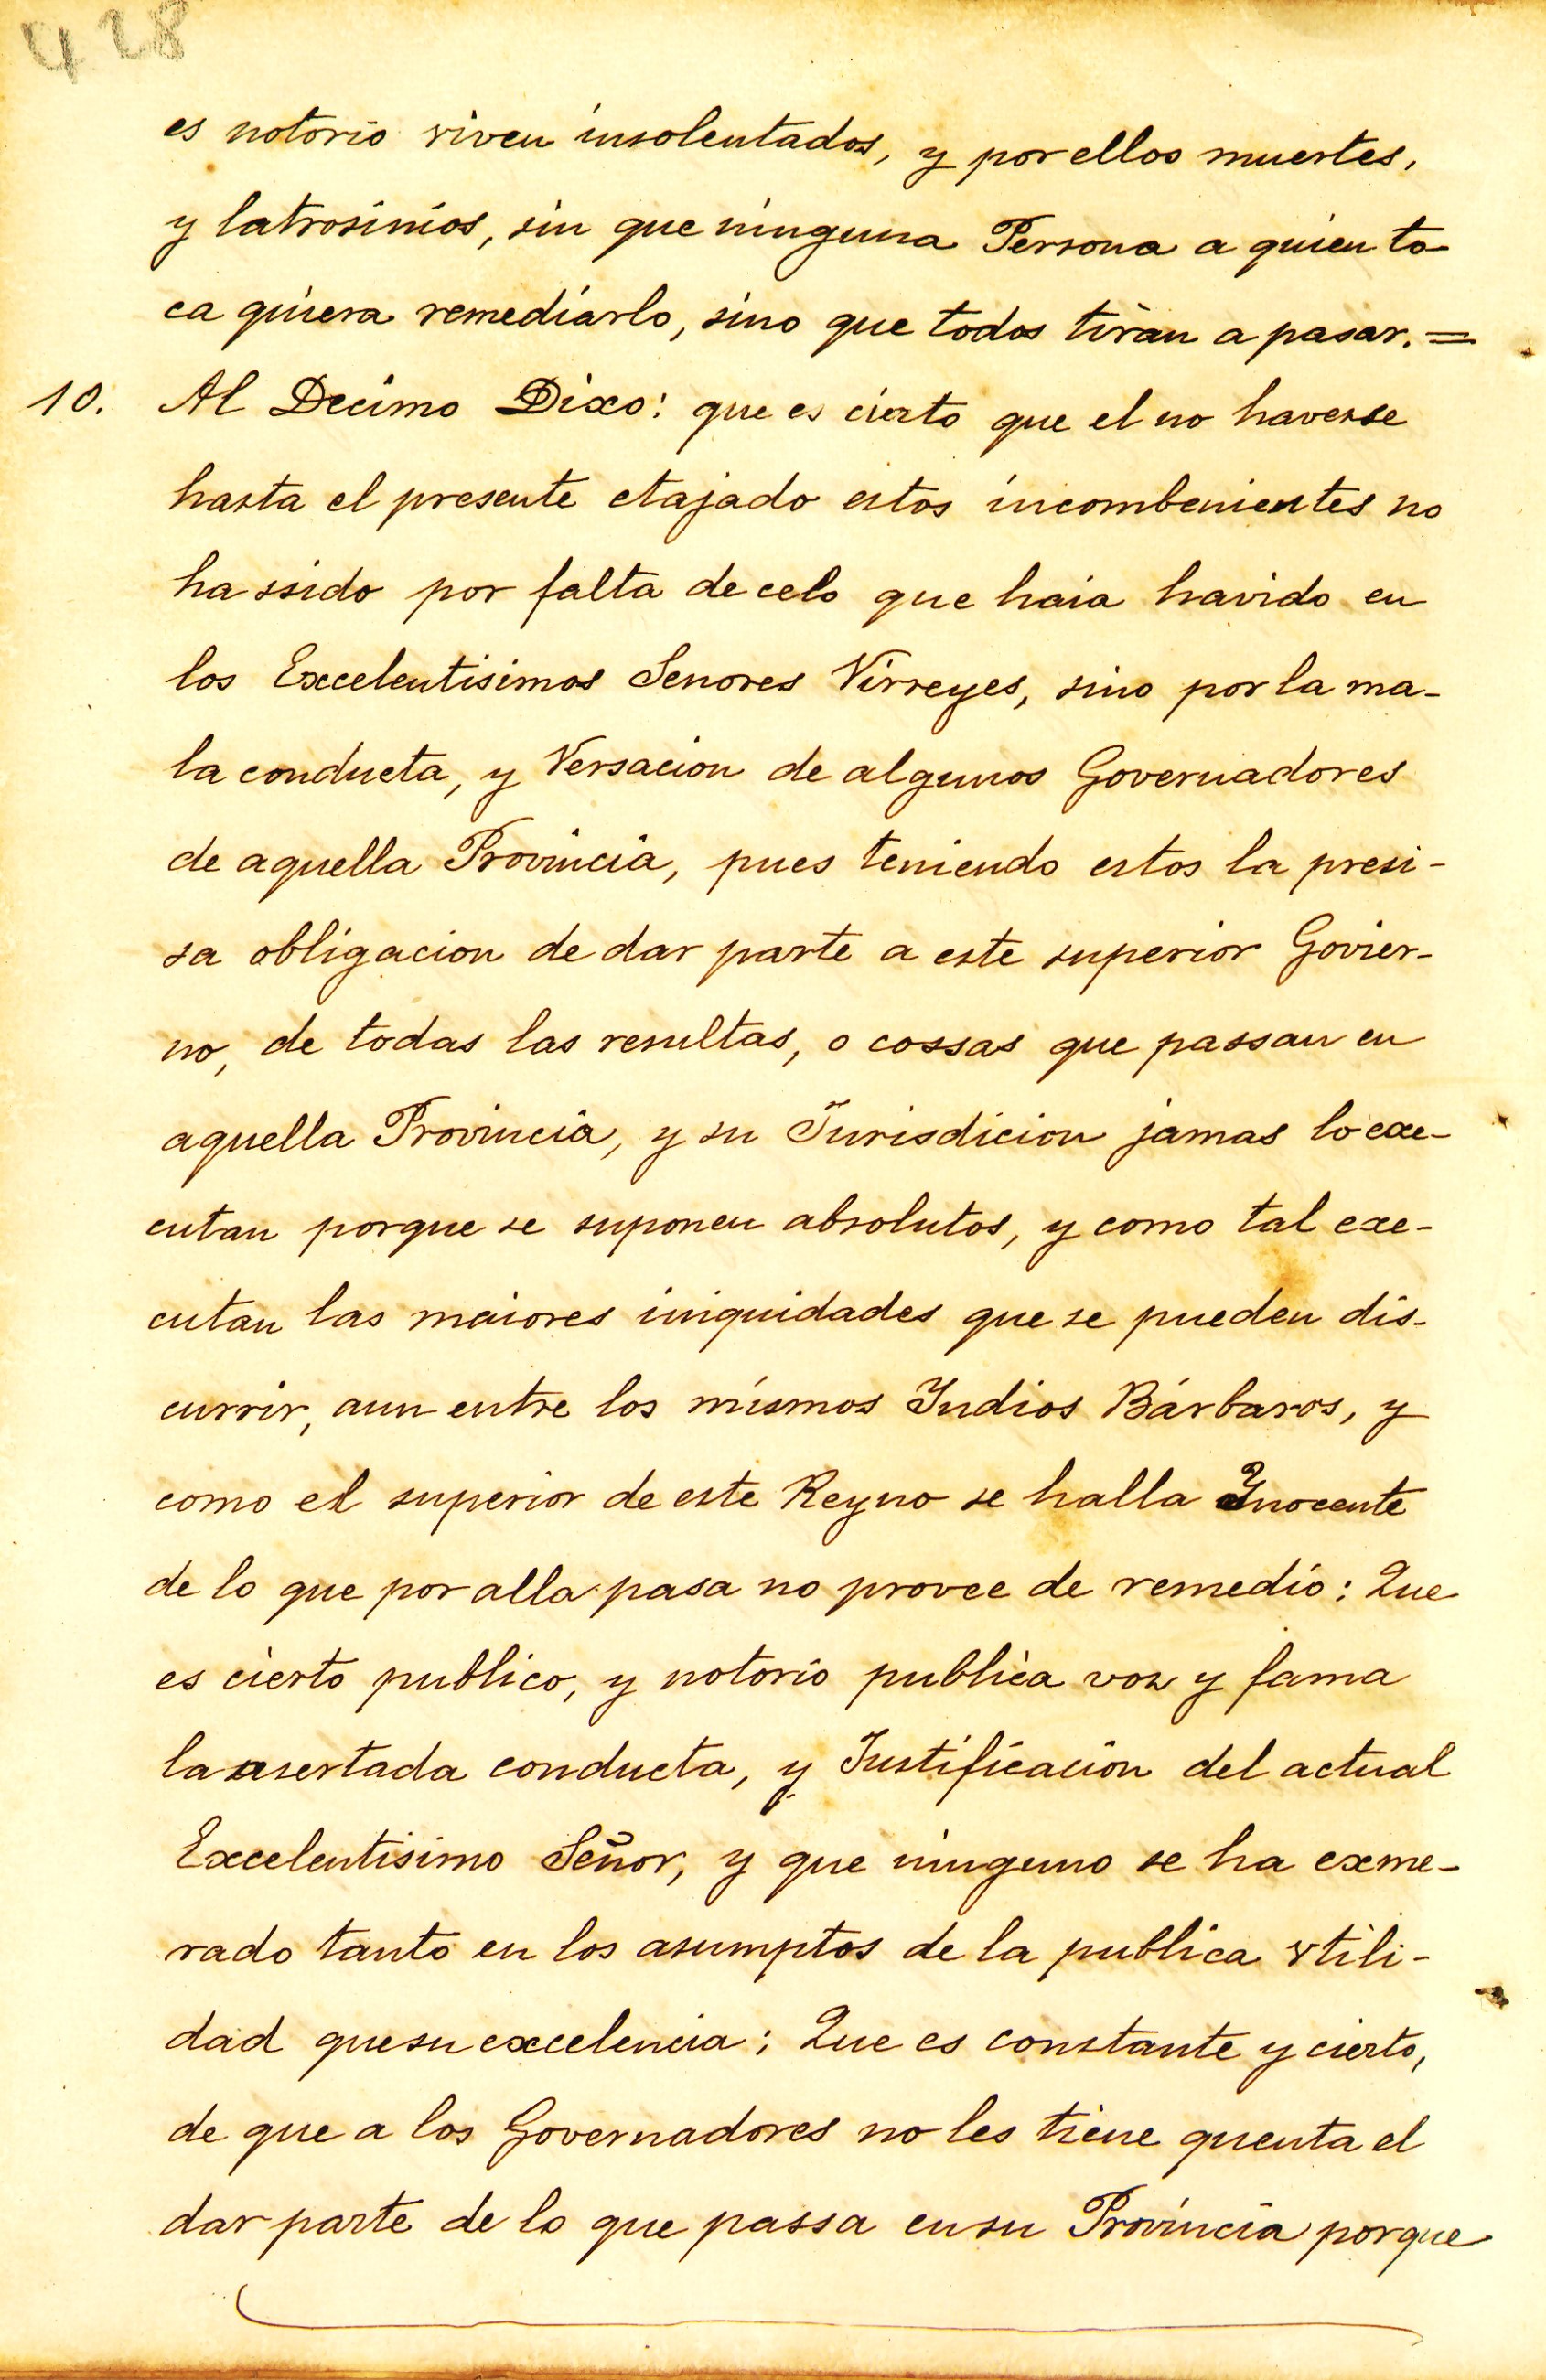 428
es notorio viven insolentados, y por ellos muertes,
y latrosinios, sin que ninguna Persona a quien to-
ca quiera remediarlo, sino que todos tiran a pasar. =
10. Al Decimo Dixo: que es cierto que el no haverse
hasta el presente etajado estos incombenientes no
ha ssido por falta de celo que haia havido en
los Excelentisimos Senores Virreyes, sino por la ma-
la conducta, y Versacion de algunos Governadores
de aquella Provincia, pues teniendo estos la presi-
sa obligacion de dar parte a este superior Govier-
no, de todas las resultas, o cossas que passan en
aquella Provincia, y su Jurisdicion jamas lo exe-
cutan porque se suponen absolutos, y como tal exe-
cutan las maiores iniquidades que se pueden dis-
currir, aun entre los mismos Indios Bárbaros, y
como el superior de este Reyno se halla Ynocente
de lo que por alla pasa no provee de remedio: Que
es cierto publico, y notorio publica voz y fama
la asertada conducta, y Justificacion del actual
Excelentisimo Señor, y que ninguno se ha exme-
rado tanto en los asumptos de la publica vtili-
dad que su excelencia; Que es constante y cierto,
de que a los Governadores no les tiene quenta el
dar parte de lo que passa en su Provincia porque